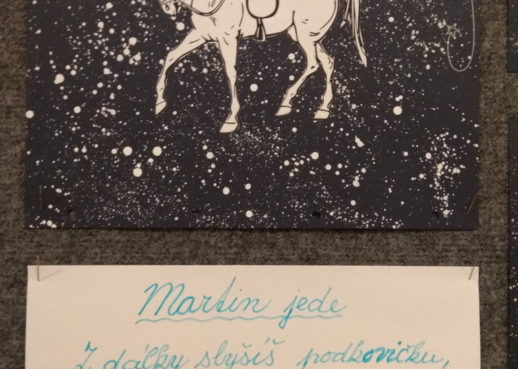 Martin jede
Z dálky slyšíš podkovičku,